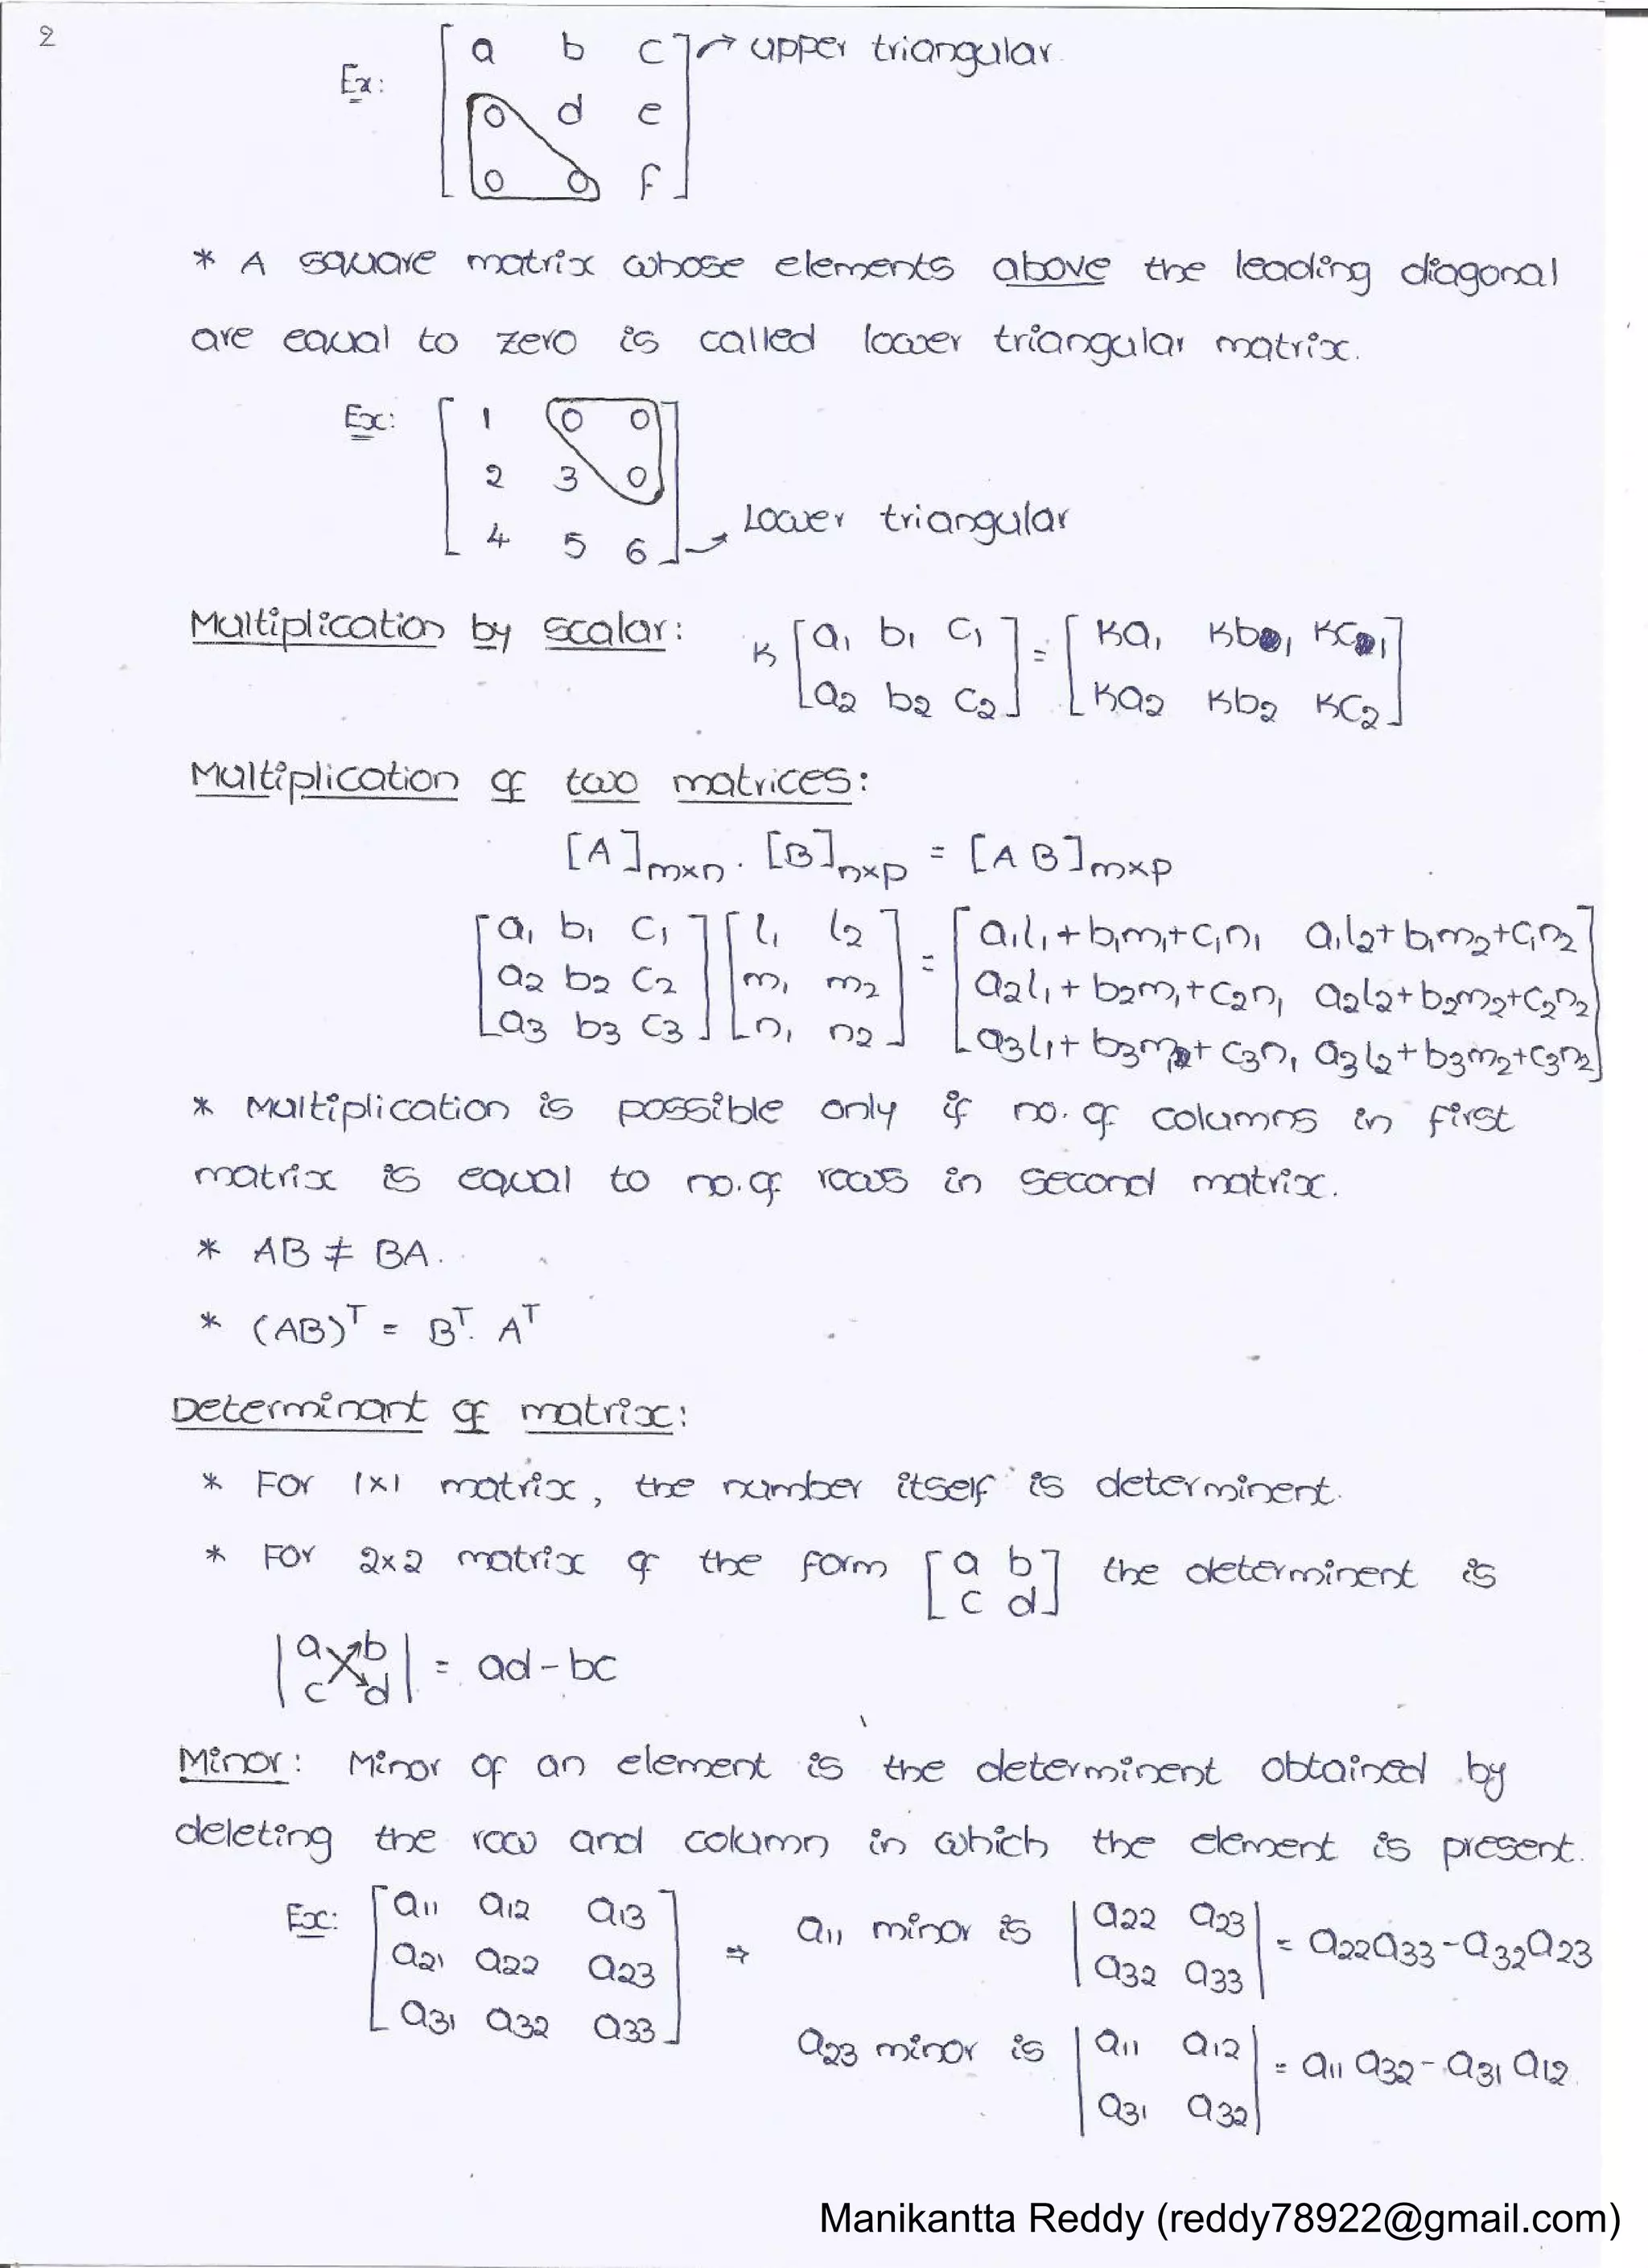 2
Ex: [ a b c ] → upper triangular
0 d e
0 0 f
* A square matrix whose elements above the leading diagonal
are equal to zero is called lower triangular matrix.
Ex: [ 1 0 0
2 3 0
4 5 6 ] → Lower triangular
Multiplication by scalar: K [ a1 b1 c1 ] = [ Ka1 Kb1 Kc1 ]
[ a2 b2 c2 ] [ Ka2 Kb2 Kc2 ]
Multiplication of two matrices:
[A]m×n . [B]n×p = [AB]m×p
[ a1 b1 c1 ] [ l1 l2 ] = [ a1l1+b1m1+c1n1 a1l2+b1m2+c1n2 ]
[ a2 b2 c2 ] [ m1 m2 ] [ a2l1+b2m1+c2n1 a2l2+b2m2+c2n2 ]
[ a3 b3 c3 ] [ n1 n2 ] [ a3l1+b3m1+c3n1 a3l2+b3m2+c3n2 ]
* Multiplication is possible only if no. of columns in first
matrix is equal to no. of rows in second matrix.
* AB ≠ BA.
* (AB)ᵀ = Bᵀ. Aᵀ
Determinant of matrix:
* For 1×1 matrix, the number itself is determinent.
* For 2×2 matrix of the form [ a b ] the determinent is
[ c d ]
| a b |
| c d | = ad-bc
Minor: Minor of an element is the determinent obtained by
deleting the row and column in which the element is present.
Ex: [ a11 a12 a13 ] ⇒ a11 minor is | a22 a23 | = a22a33-a32a23
[ a21 a22 a23 ] | a32 a33 |
[ a31 a32 a33 ] a23 minor is | a11 a12 | = a11 a32 - a31 a12.
| a31 a32 |
Manikantta Reddy (reddy78922@gmail.com)